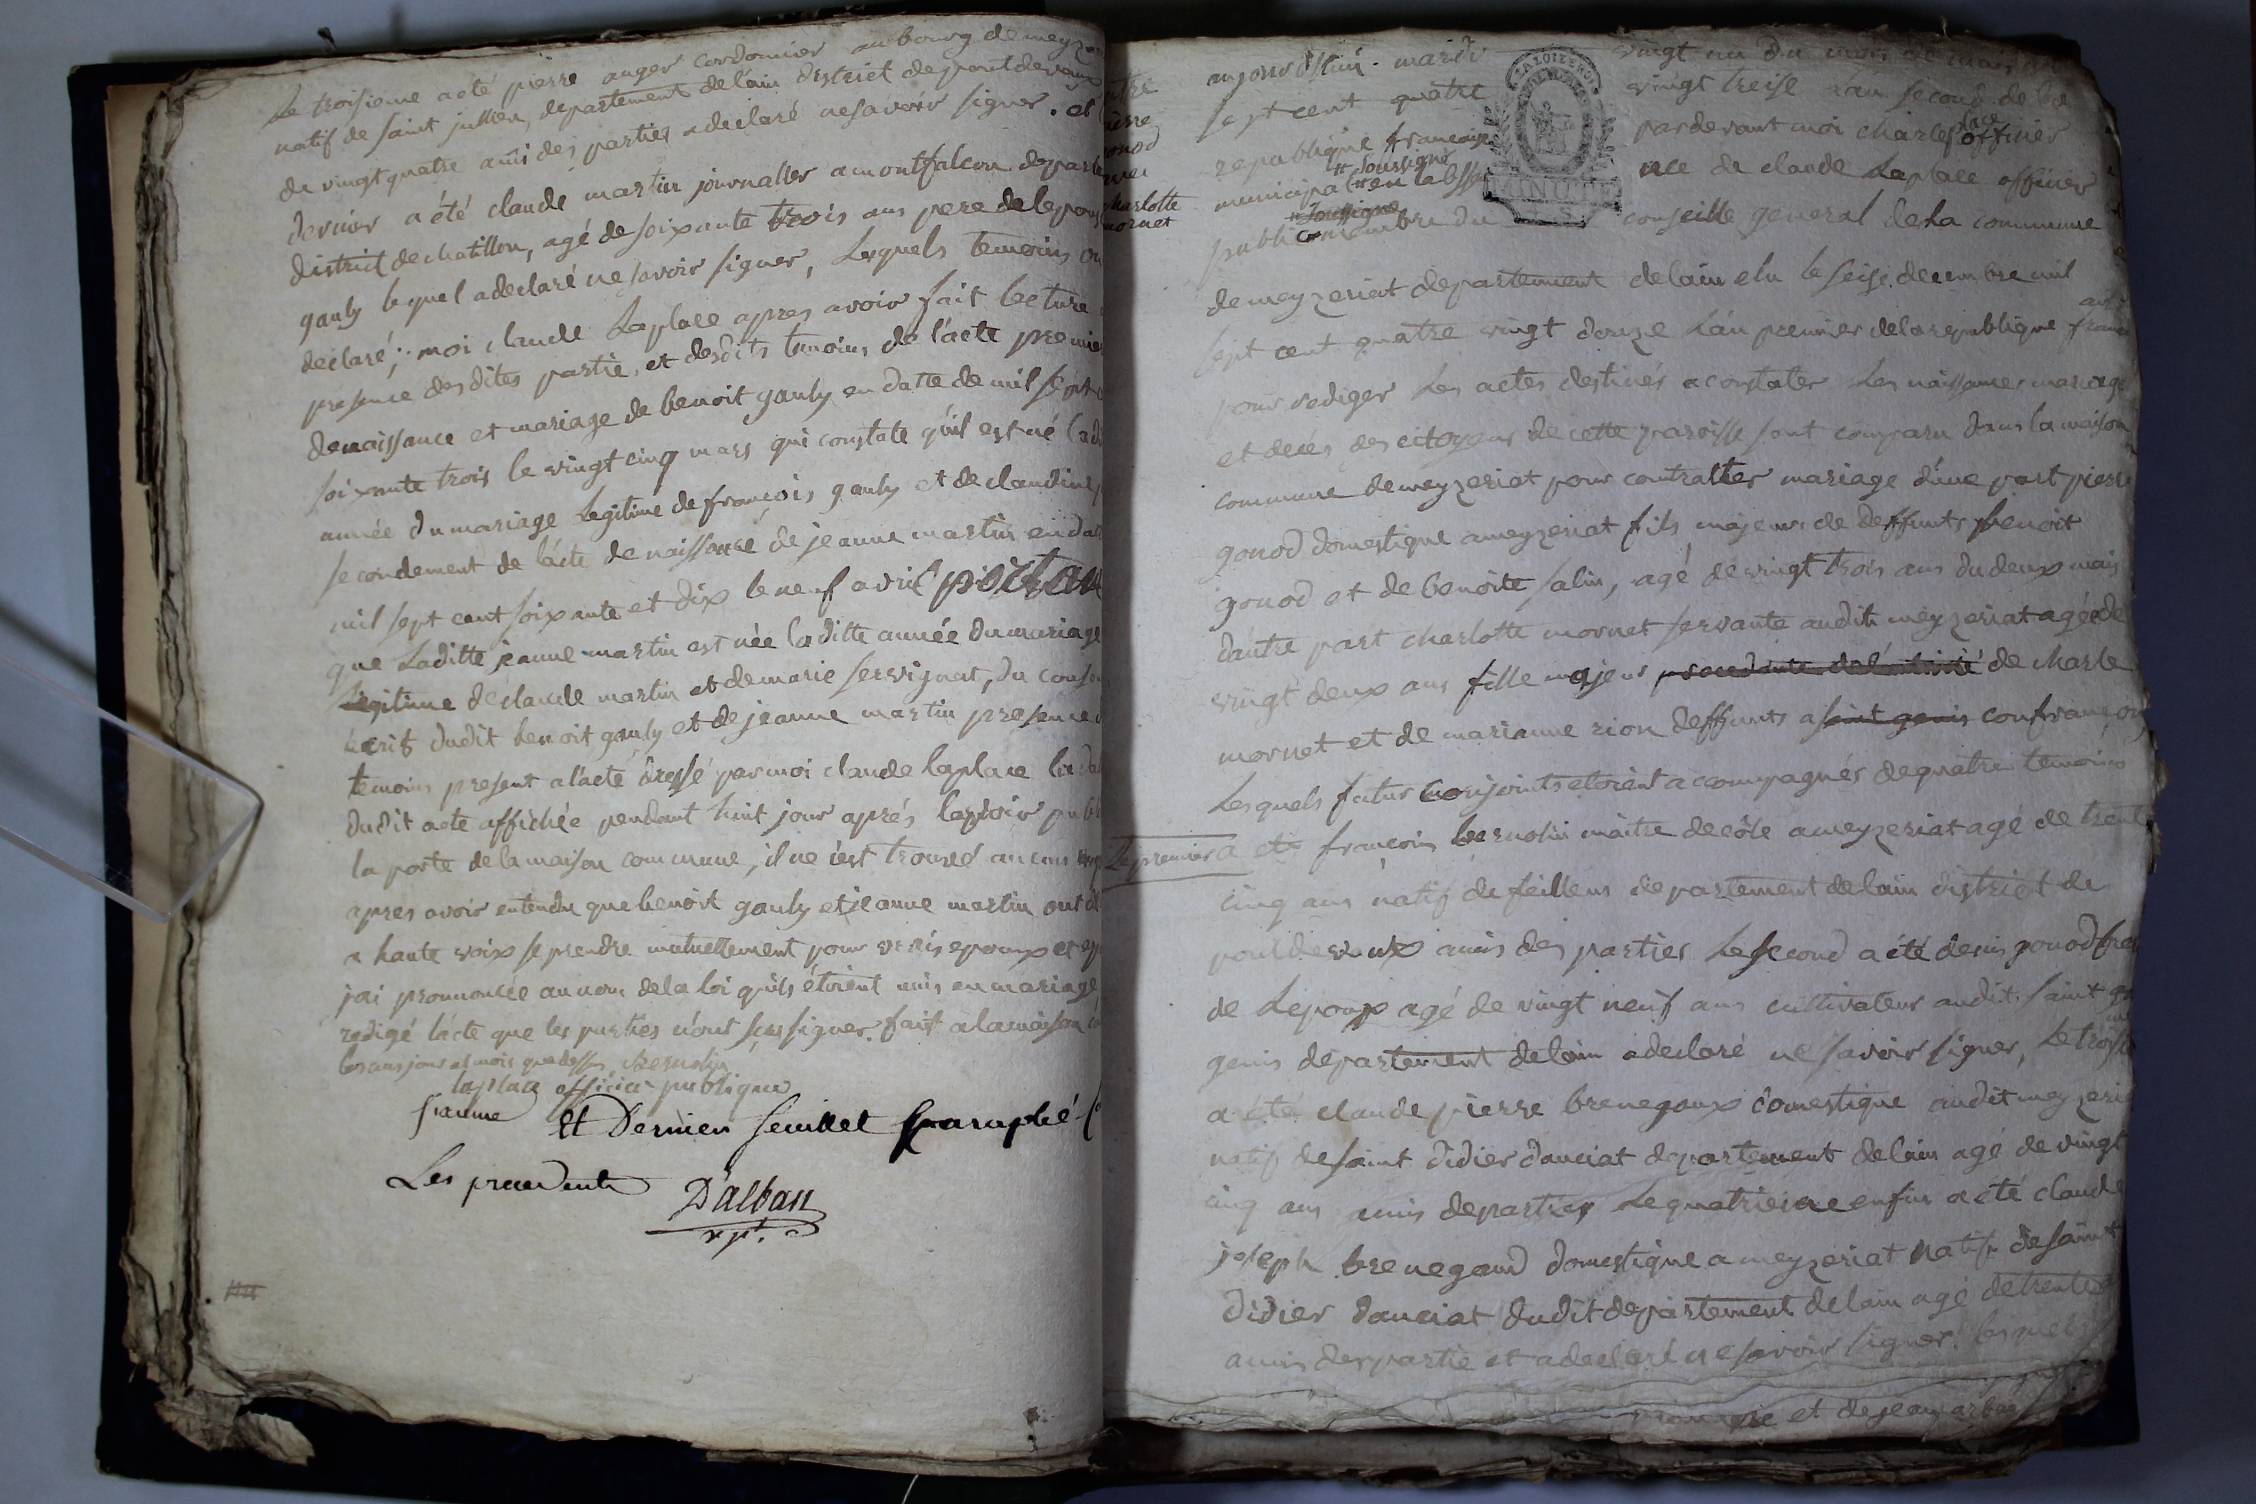 Le troisieme a été pierre auger cordonnier au bourg de meyze
natif de saint jullien, departement de lain district de pont de vaux
de vingt quatre amis des parties a declaré ne savoir signer. et
dernier a été claude martin journallier a montfalcon departe
district de chatillon, agé de soixante trois ans pere de lepous
gauly lequel a declaré ne savoir signer, Lesquels temoins on
declaré; moi claude Laplace apres avoir fait lecture
presence des dites partie, et desdits temoins de lácte premie
de naissance et mariage de benoit gauly en datte de mil sept c
soixante trois le vingt cinq mars qui constate qúil est né ladi
année du mariage Legitime de françois gauly et de claudine
secondement de lácte de naissance de jeanne martin en dat
mil sept cent soixante et dix le neuf avril portan
que Laditte jeanne martin est née laditte année du mariage
Legitime de claude martin et de marie servignat, du conse
dudit benoit gauly et de jeanne martin presence
temoins present a lácte dressé par moi claude laplace
dudit acte affichée pendant huit jour aprés lavoir publ
la porte de la maison commune, il ne sést trouvé aucuns
apres avoir entendu que benoit gauly et jeanne martin ont d
a haute voix se prendre mutuellement pour vrais epoux et ep
jai prononcée au nom de la loi qúils étoient unis en mariage
redigé lácte que les parties n'ont sçus signer. fait a la maison
les ans jour et mois que dessus Bernolin
laplace officier publique
et Dernier feuillet paraphé
Les precedents
D'alban
vpt.
ntre
pierre
gonod
charlotte
mornet
aujourdhui mardi vingt un du mois de mai mil
sept cent quatre vingt treise lán second de la
republique francaise pardevant moi charle place officier
municipal soussigné en labsence de claude Laplace officier
soussigné
public membre du conseille general de La commune
de meyzeriat departement de lain elu le seise decembre mil
sept cent quatre vingt douze Lán premier de la republique franc
pour rediger Les actes destinés a constater Les naissances mariage
et decés des citoyens de cette paroisse sont comparu dans la maison
commune de meyzeriat pour contracter mariage dúne part pierre
gonod domestique a meyzeriat fils majeur de deffunts benoit
gonod et de benoite salin, agé de vingt trois ans du deux mais
dáutre part charlotte mornet servante audit meyzeriat agée de
vingt deux ans fille majeur procedante de láutorité de charle
mornet et de marianne rion deffunts a saint genis confrançon
Lesquels futur conjoints etoient accompagnés de quatre temoins
Le premier a eté françois bernolin maitre décole a meyzeriat agé de trent
cinq ans natif de feillens departement de lain district de
pont de vaux amis des parties Le second a été denis gonod frer
de Lepoux agé de vingt neuf ans cultivateur audit saint
genis departement de lain a declaré ne savoir signer, Le troisie
a été claude pierre brenegoux domestique audit meyzeria
natif de saint didier daussiat departement de lain agé de vingt
cinq ans amis de parties Le quatrieme enfin a été claude
joseph brenegaud domestique a meyzeriat natif de saint
didier daussiat dudit departement de lain agé de trente
amis des partie et a declaré ne savoir signer. lesquels
et de jean